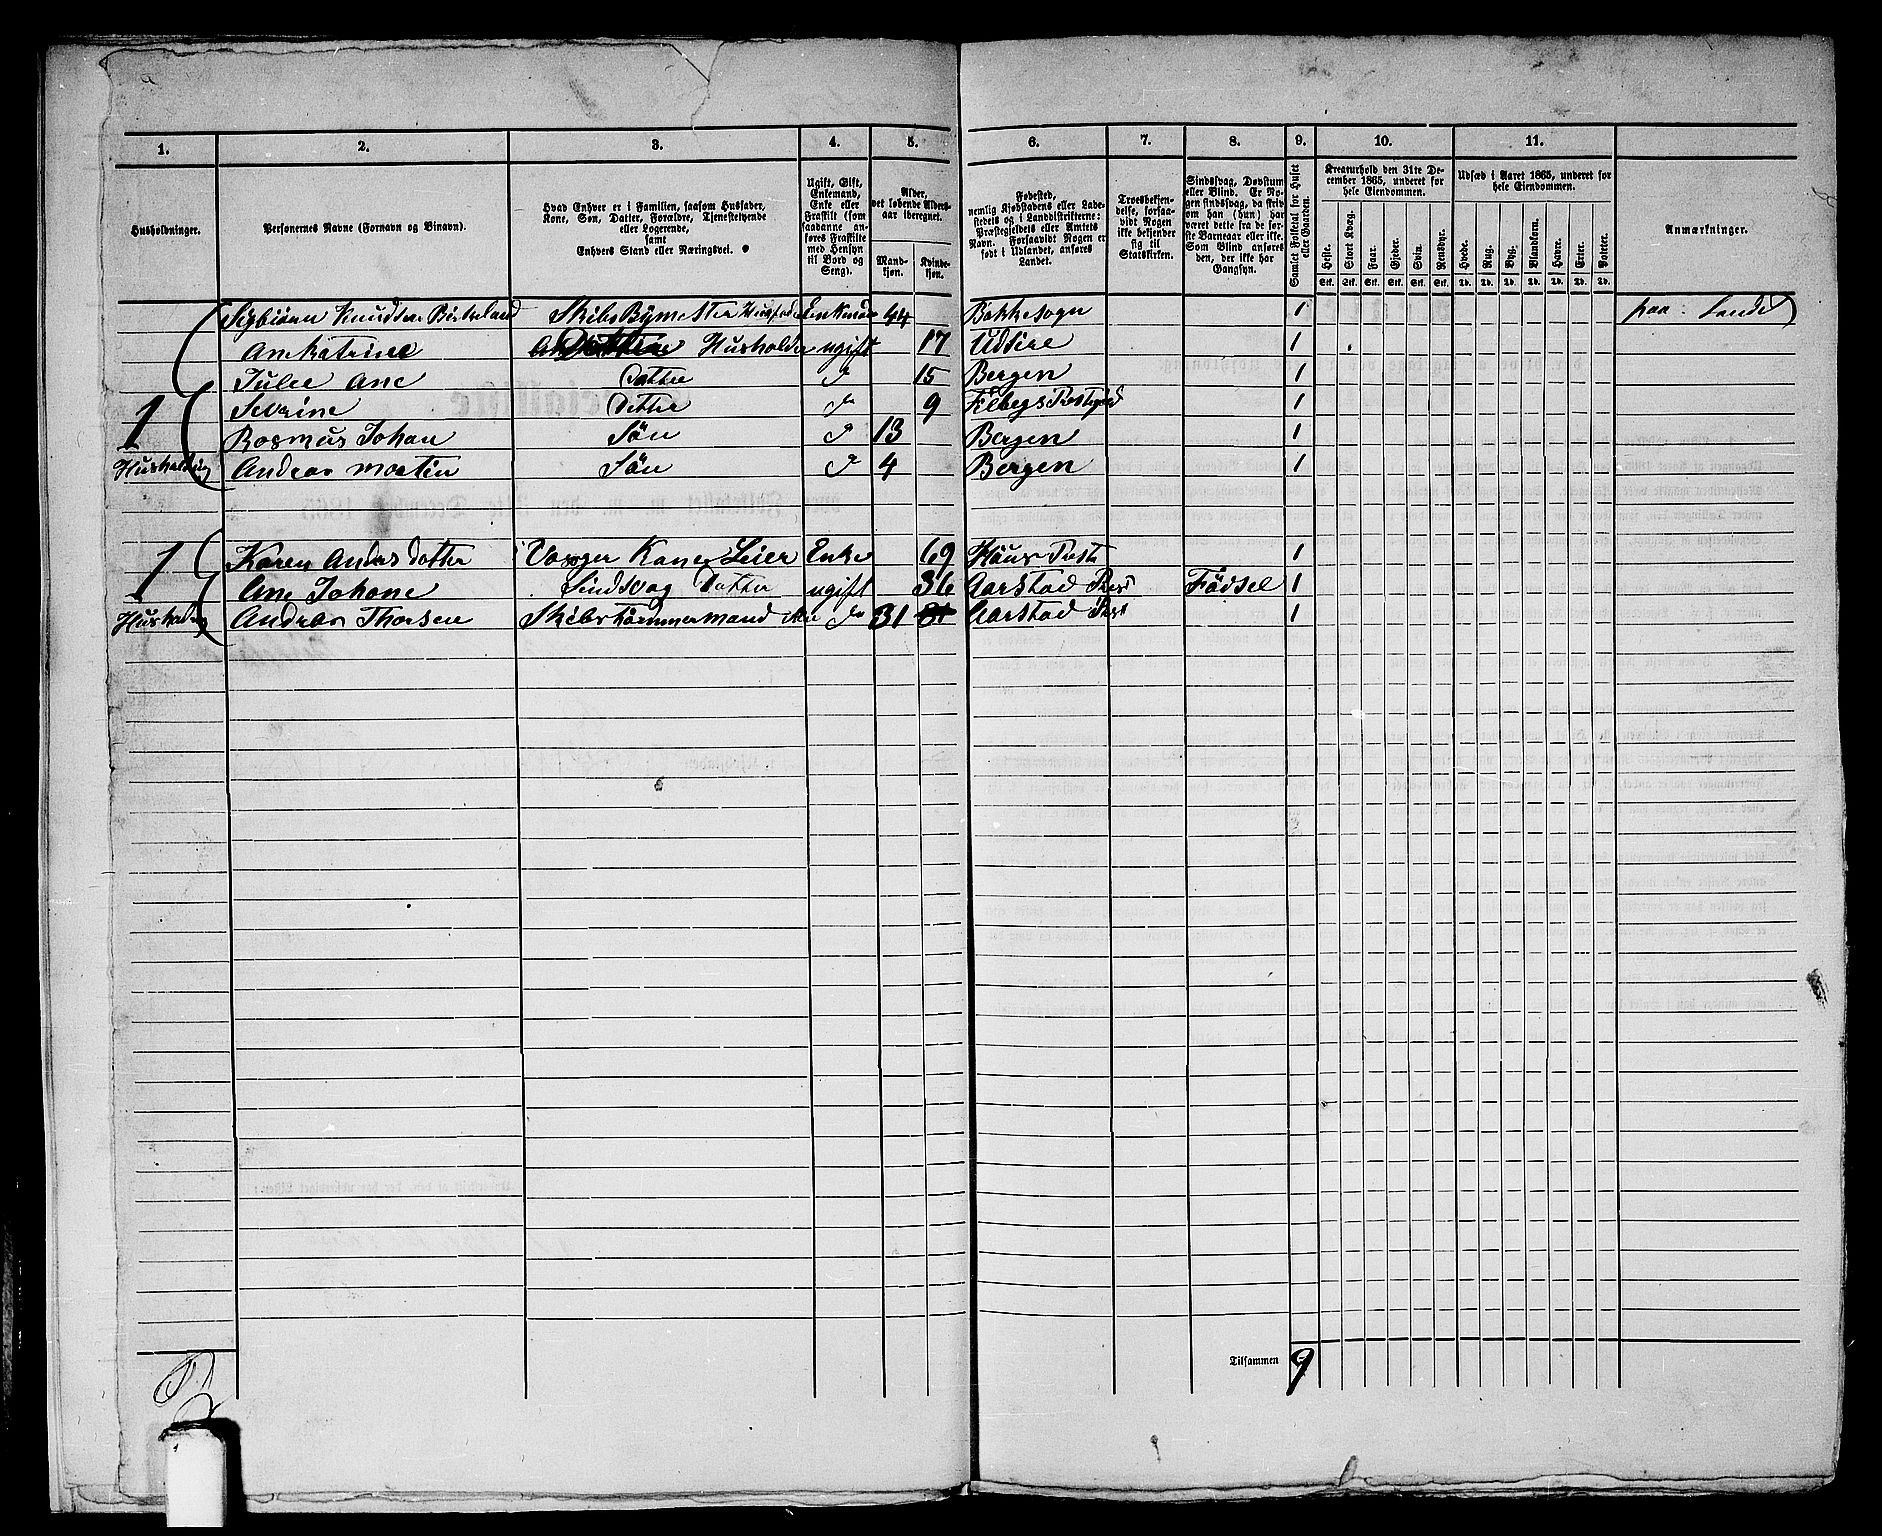 1. 2. 3. 4. 5. 6. 7. 8. 9. 10. 11.
Husholdninger.
Personernes Navne (Fornavn og Binavn).
Hvad Enhver er i Familien, saasom Husfader,
Kone, Søn, Datter, Forældre, Tjenestetyende
eller Logerende,
samt
Enhvers Stand eller Næringsvei.
Ugift, Gift,
Enkemand,
Enke eller
Fraskilt (som
saadanne an-
føres Fraskilte
med Hensyn
til Bord og
Seng).
Alder,
det løbende Alders-
aar iberegnet.
Mand-
kjøn.
Kvinde-
kjøn.
Fødested,
nemlig Kjøbstadens eller Lade-
stedets og i Landdistrikterne:
Præstegjeldets eller Amtets
Navn. Forsaavidt Nogen er
født i Udlandet, anføres
Landet.
Troesbekjen-
delse, forsaa-
vidt Nogen
ikke bekjender
sig til
Statskirken.
Sindssvag, Døvstum
eller Blind. Er No-
gen sindssvag, da skriv
om han (hun) har
været dette fra de før-
ste Barneaar eller ikke.
Som Blind anføres
den, der ikke har
Gangsyn.
Samlet Folketal for Huset
eller Gaarden.
Kreaturhold den 31te De-
cember 1865, underet for
hele Eiendommen.
Heste. Stort Kvæg. Faar. Gjeder. Svin. Rensdyr.
Stk. Stk. Stk. Stk. Stk. Stk.
Udsæd i Aaret 1865, underet for
hele Eiendommen.
Hvede. Rug. Byg. Blandkorn. Havre. Erter. Poteter.
Td. Td. Td. Td. Td. Td. Td.
Anmærkninger.
Sigbiørn Knudsen Birkeland Skibs Bÿmester Husfader Enkemand 44 Bakkesogn 1 paa Landet
Ane Katrine Husholder ugift 17 Udsire 1
Julee Ane Datter do 15 Bergen 1
1 Sevrine Datter do 9 9 1
Rasmus Johan Søn do 13 Bergen 1
Husholdning Andreas Martin Søn do 4 Bergen 1
1 Karen Anders Datter Enke 69 Haus Prest 1
Ane Johane Sindsvag Datter ugift 36 Aarstad Prest Fødsel 1
Husholdning Andreas Thorsen Skibstømmermand do 31 31 Aarstad Prest 1
Tilsammen 9